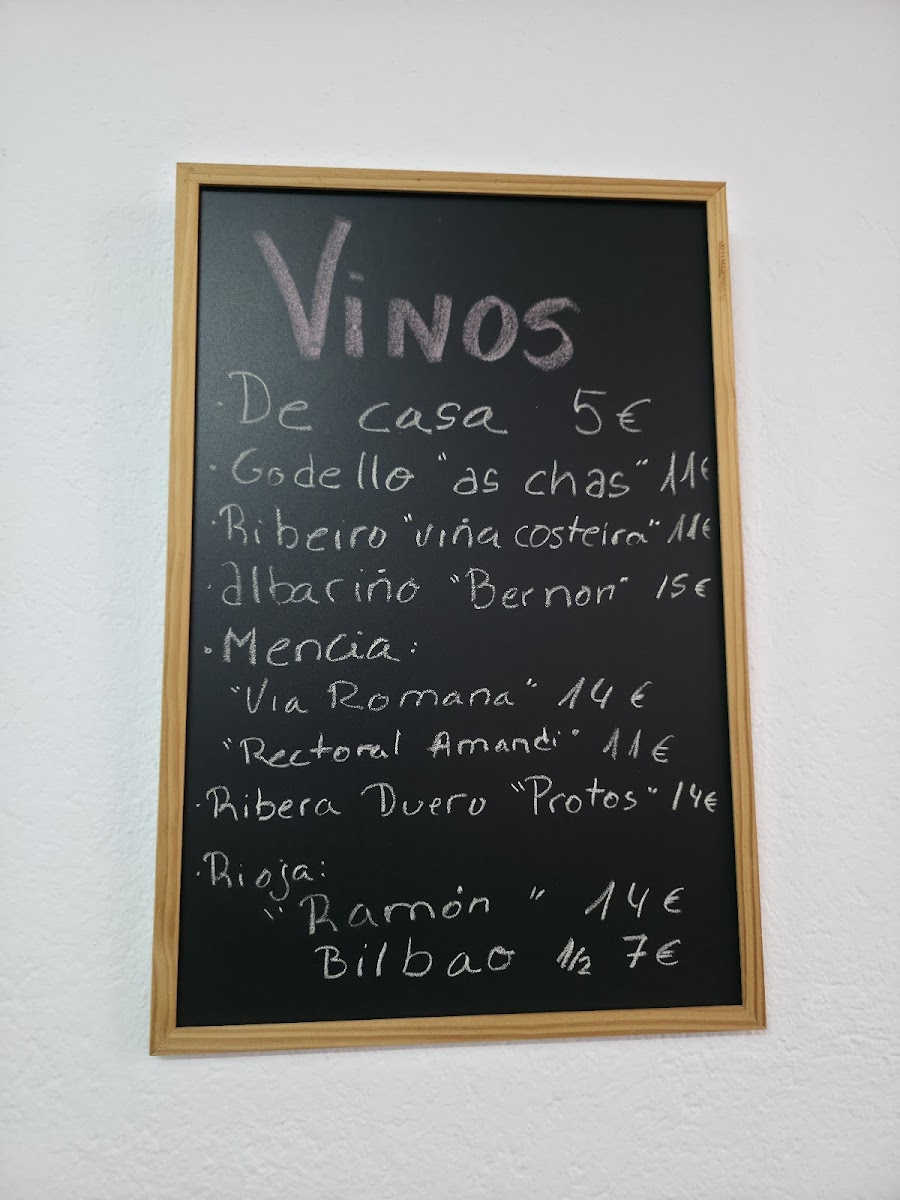 Vinos
· De casa 5€
· Godello "as chas" 11€
· Ribeiro "viña costeira" 11€
· albariño "Bernon" 15€
· Mencia:
"Via Romana" 14€
"Rectoral Amandi" 11€
· Ribera Duero "Protos" 14€
· Rioja:
"Ramón" 14€
Bilbao 1/2 7€